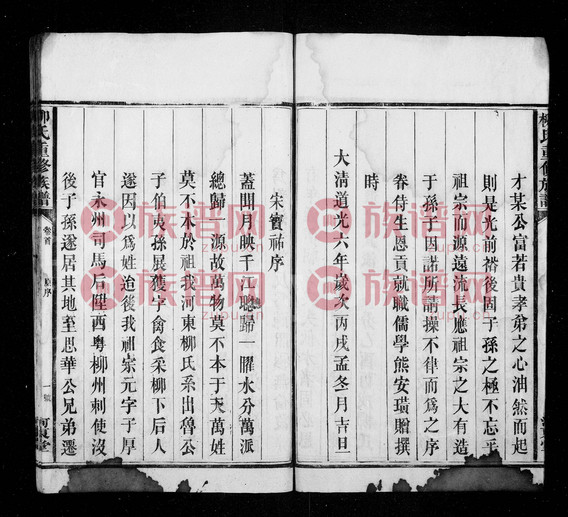 柳氏重修族譜
才某公富若貴孝弟之心油然而起
則是光前裕後固子孫之極不忘乎
祖宗而源遠流長應祖宗之大有造
于孫子因諾所請操不律而爲之序
眷侍生恩貢就職儒學熊安璜贈撰
大清道光六年歲次丙戌孟冬月吉旦
時
宋寶祐序
蓋聞月映千江總歸一曜水分萬派
總歸一源故萬物莫不本于天萬姓
莫不本於祖我河東柳氏系出魯公
子伯夷孫展獲字禽食采柳下后人
遂因以爲姓迨後我祖宗元字子厚
官永州司馬后陞西粵柳州刺使沒
後子孫遂居其地至思華公兄弟遷
柳氏重修族譜
卷首
序
一
河東堂
族谱网
zupu.cn